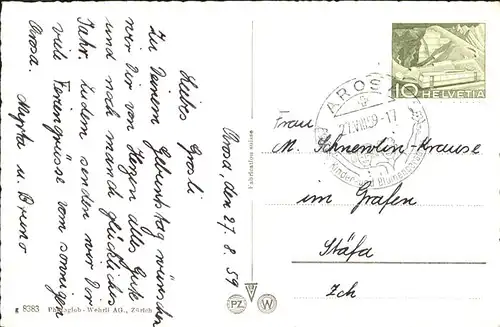 Arosa, den 27. 8. 59
Liebs Grosli
Zu Deinem Geburtstag wünschen
wir Dir von Herzen alles Gute
und noch manch glückliches
Jahr. Zudem senden wir Dir
viele Feriengrüsse vom sonnigen
Arosa.
Myrta u. Bruno
Fabrication suisse
g 8383 Photoglob-Wehrli AG., Zürich
PZ W
10 HELVETIA
AROSA
27.VIII.59-17
Frau
M. Schneulin-Krause
im Grafen
Stäfa
Zch